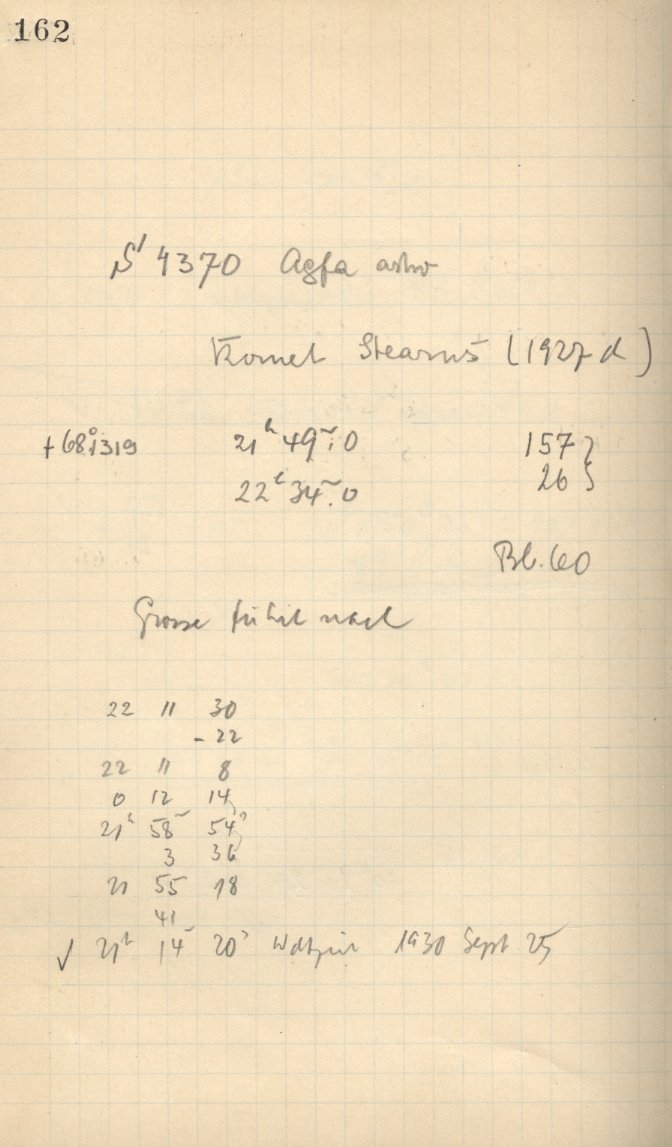 162
S 4370 Agfa astro
Komet Stearns (1927 d)
+68°1319 21ʰ 49ᵐ.0 157 }
22ʰ 34ᵐ.0 26 }
Bl. 60
Grosse führt nach
22 11 30
- 22
22 11 8
0 12 14
21ʰ 58ᵐ 54ˢ
3 36
21 55 18
41
√ 21ʰ 14ᵐ 20ˢ 1930 Sept 25